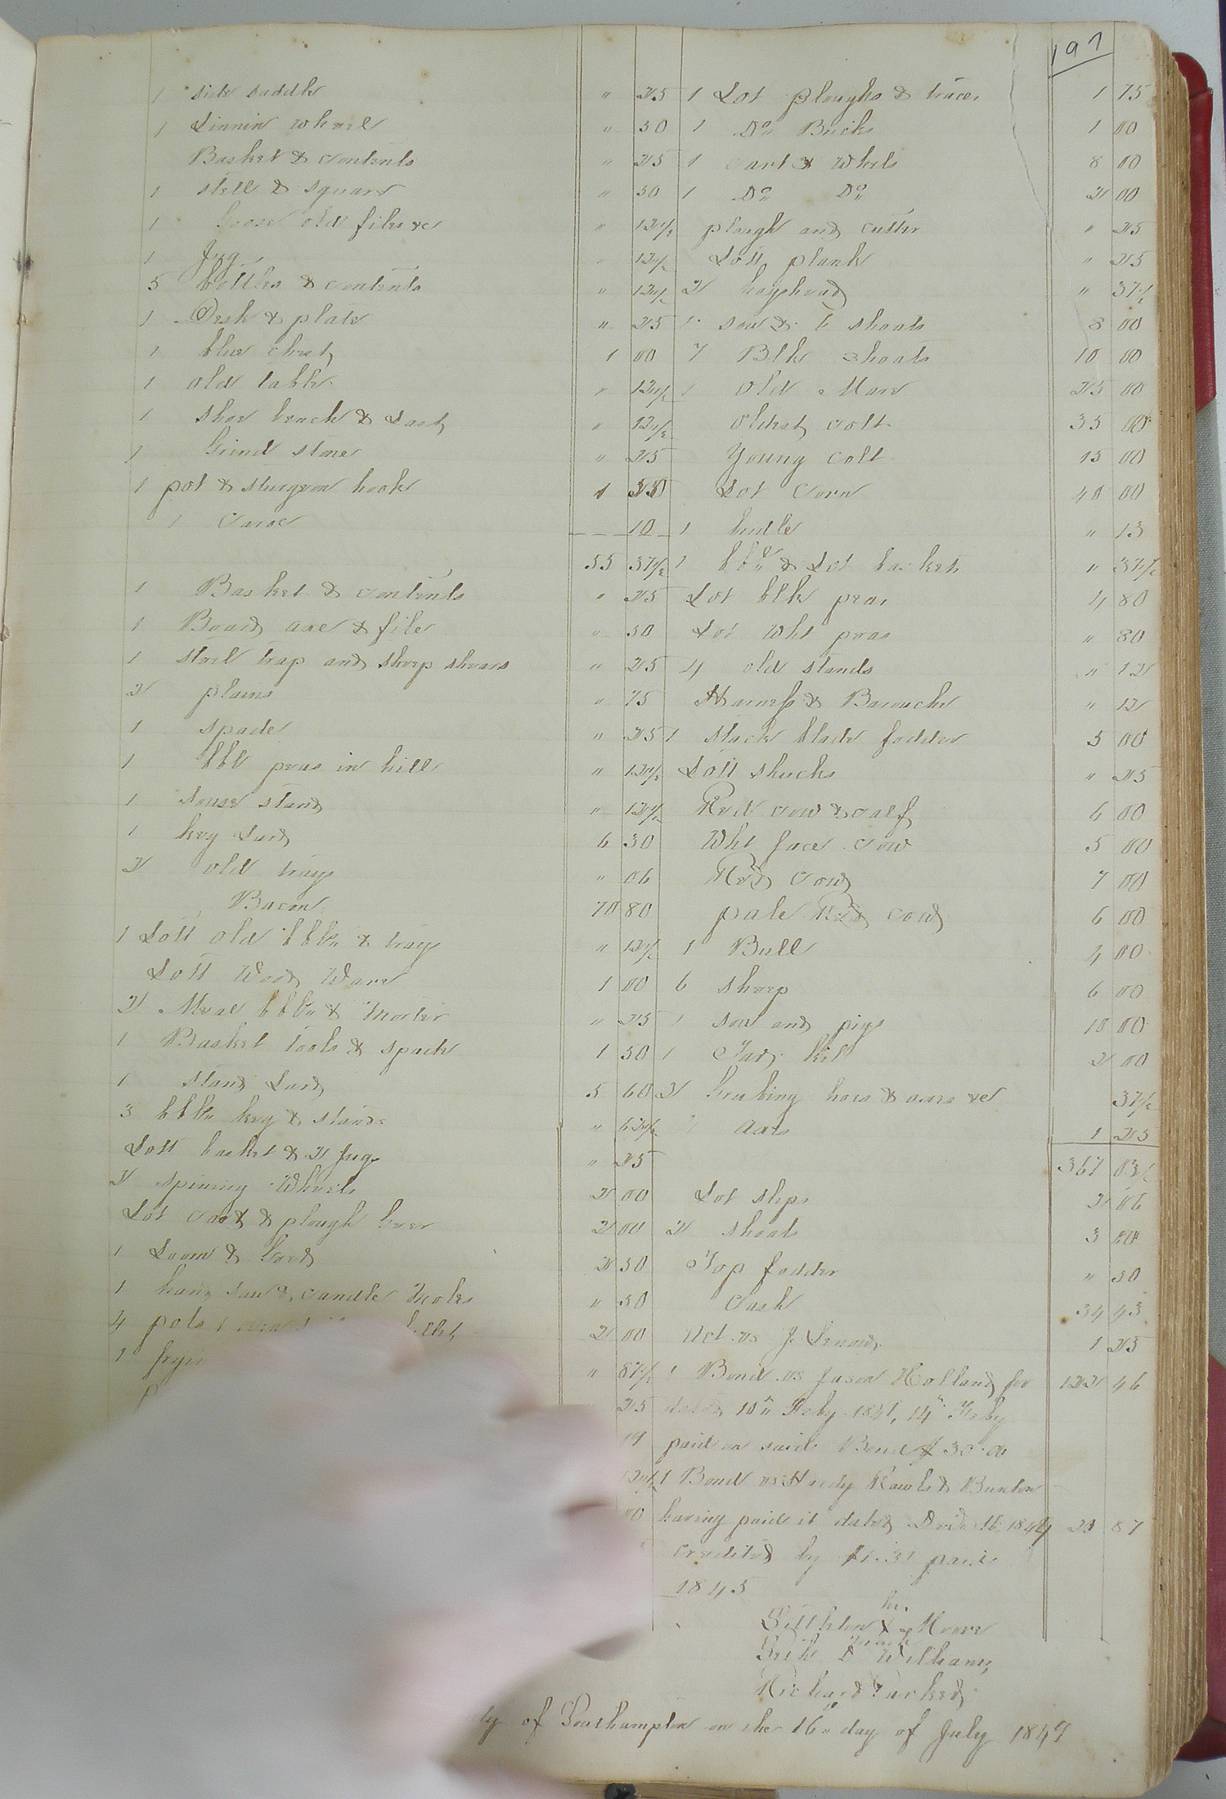 197
1 side saddle " 25
1 Linnin wheel " 50
Basket & contents " 25
1 steel & square " 50
1 goose old files &c " 12½
1 Jug " 12½
5 bottles & contents " 12½
1 Desk & plate " 25
1 blue chest 1 00
1 old table " 12½
1 shoe bench & Last " 12½
1 Grind stone " 25
1 pot & sturgeon hook 1
1 Canoe 10
55 37½
1 Basket & contents " 25
1 Board axe & file " 50
1 steel trap and sheep shears " 25
2 plains " 75
1 spade " 25
1 bbl peas in hull " 12½
1 souse stand " 12½
1 keg Lard 6 30
2 old trays " 06
Bacon 70 80
1 Lott old bbls & trays " 12½
Lott Wood Ware 1 00
2 Meal bbls & morter " 25
1 Basket Tools & spade 1 50
1 stand Lard 5 60
3 bbls keg & stands " 62½
Lott basket & 2 Jugs " 25
2 spinning Wheels 2 00
Lot cart & plough Gear 2 00
1 Loom & Gear 2 50
1 hand saw & candle Molds " 50
4 pots 2 00
1 " 87½
25
19
12½
00
1 Lot ploughs & traces 1 75
1 Do Bricks 1 00
1 cart & Wheels 8 00
1 Do Do 2 00
plough and cutter " 25
Lott plank " 25
2 hogsheads " 37½
1 sow & 6 shoats 8 00
7 Blk shoats 10 00
1 Old Mare 25 00
oldest colt 35 00
Young colt 15 00
Lot Corn 40 00
1 kittle " 13
1 bbl & Lot baskets " 37½
Lot blk peas 4 80
Lot Wht peas " 80
4 old stands " 12
Harness & Barouche " 12
1 stack blade fodder 5 00
Lott shucks " 25
Red cow & calf 6 00
Wht face cow 5 00
Red Cow 7 00
pale Red cow 6 00
1 Bull 4 00
6 sheep 6 00
1 sow and pigs 10 00
1 Tar kil 2 00
2 Grubing hoes & axes &c 37½
axes 1 25
367 03½
Lot slips 2 06
2 shoats 3 00
Top fodder " 50
Cash 34 43
1 25
1 Bond vs Jason Holland for 122 46
dated 10th Feby 1841, 14th Feby
paid on said Bond $30.00
1 Bond vs Hardy Rawls & Buxton
having paid it dated Decr 16 1844 23 87
credited by $1.31 paid
1845
his
Littleton X Moore
mark
Seth D Williams
Richard Parker
ty of Southampton on the 16th day of July 1849